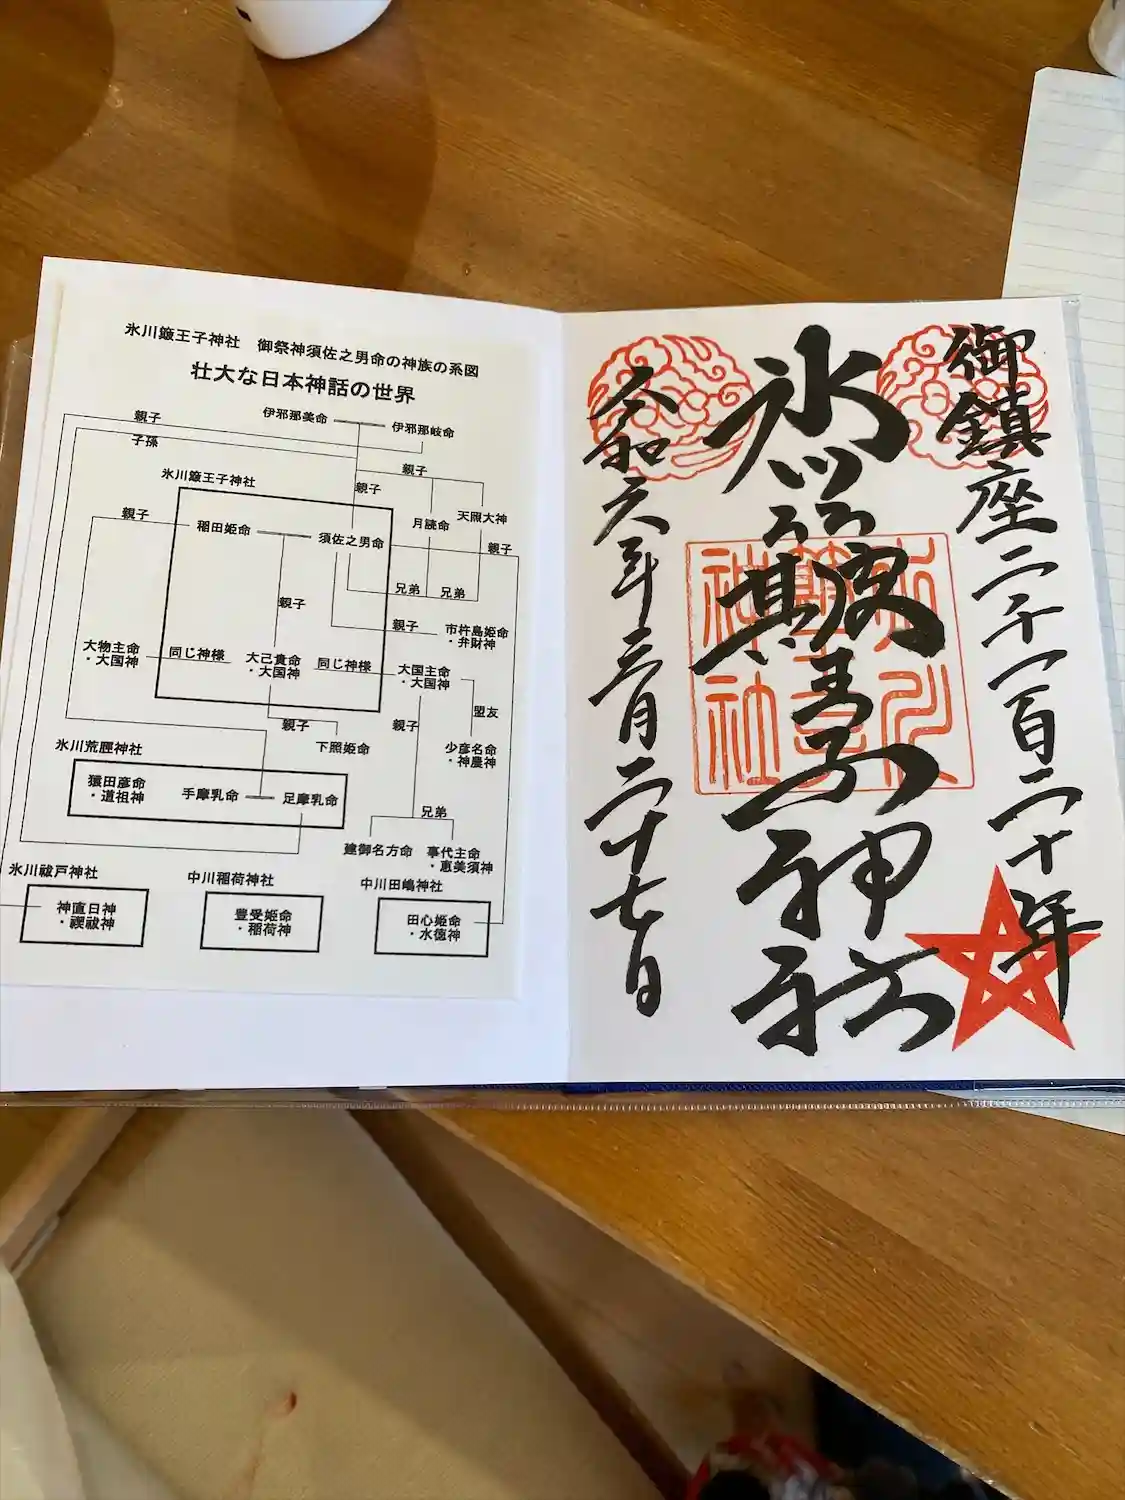 氷川簸王子神社　御祭神須佐之男命の神族の系図
壮大な日本神話の世界
伊邪那美命
伊邪那岐命
親子
子孫
親子
親子
氷川簸王子神社
月読命
天照大神
親子
稲田姫命
須佐之男命
親子
兄弟
兄弟
親子
親子
市杵島姫命
・弁財神
大物主命
・大国神
同じ神様
大己貴命
・大国神
同じ神様
大国主命
・大国神
盟友
親子
下照姫命
親子
少彦名命
・神農神
氷川荒脛神社
猿田彦命
・道祖神
手摩乳命
足摩乳命
兄弟
建御名方命
事代主命
・恵美須神
氷川祓戸神社
神直日神
・禊祓神
中川稲荷神社
豊受姫命
・稲荷神
中川田嶋神社
田心姫命
・水徳神
御鎮座二千一百二十年
氷川簸王子神社
令和六年三月二十七日